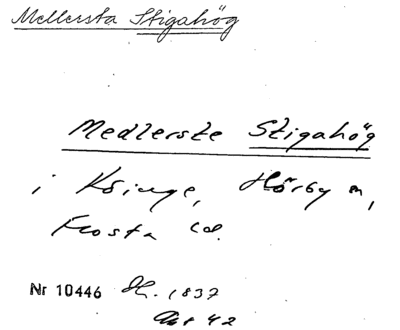 Mellersta Stigahög
Medlerste Stigahög
i Köinge, Hörby sn,
Frosta hd.
Nr 10446 Sk. 1837
Akt 42